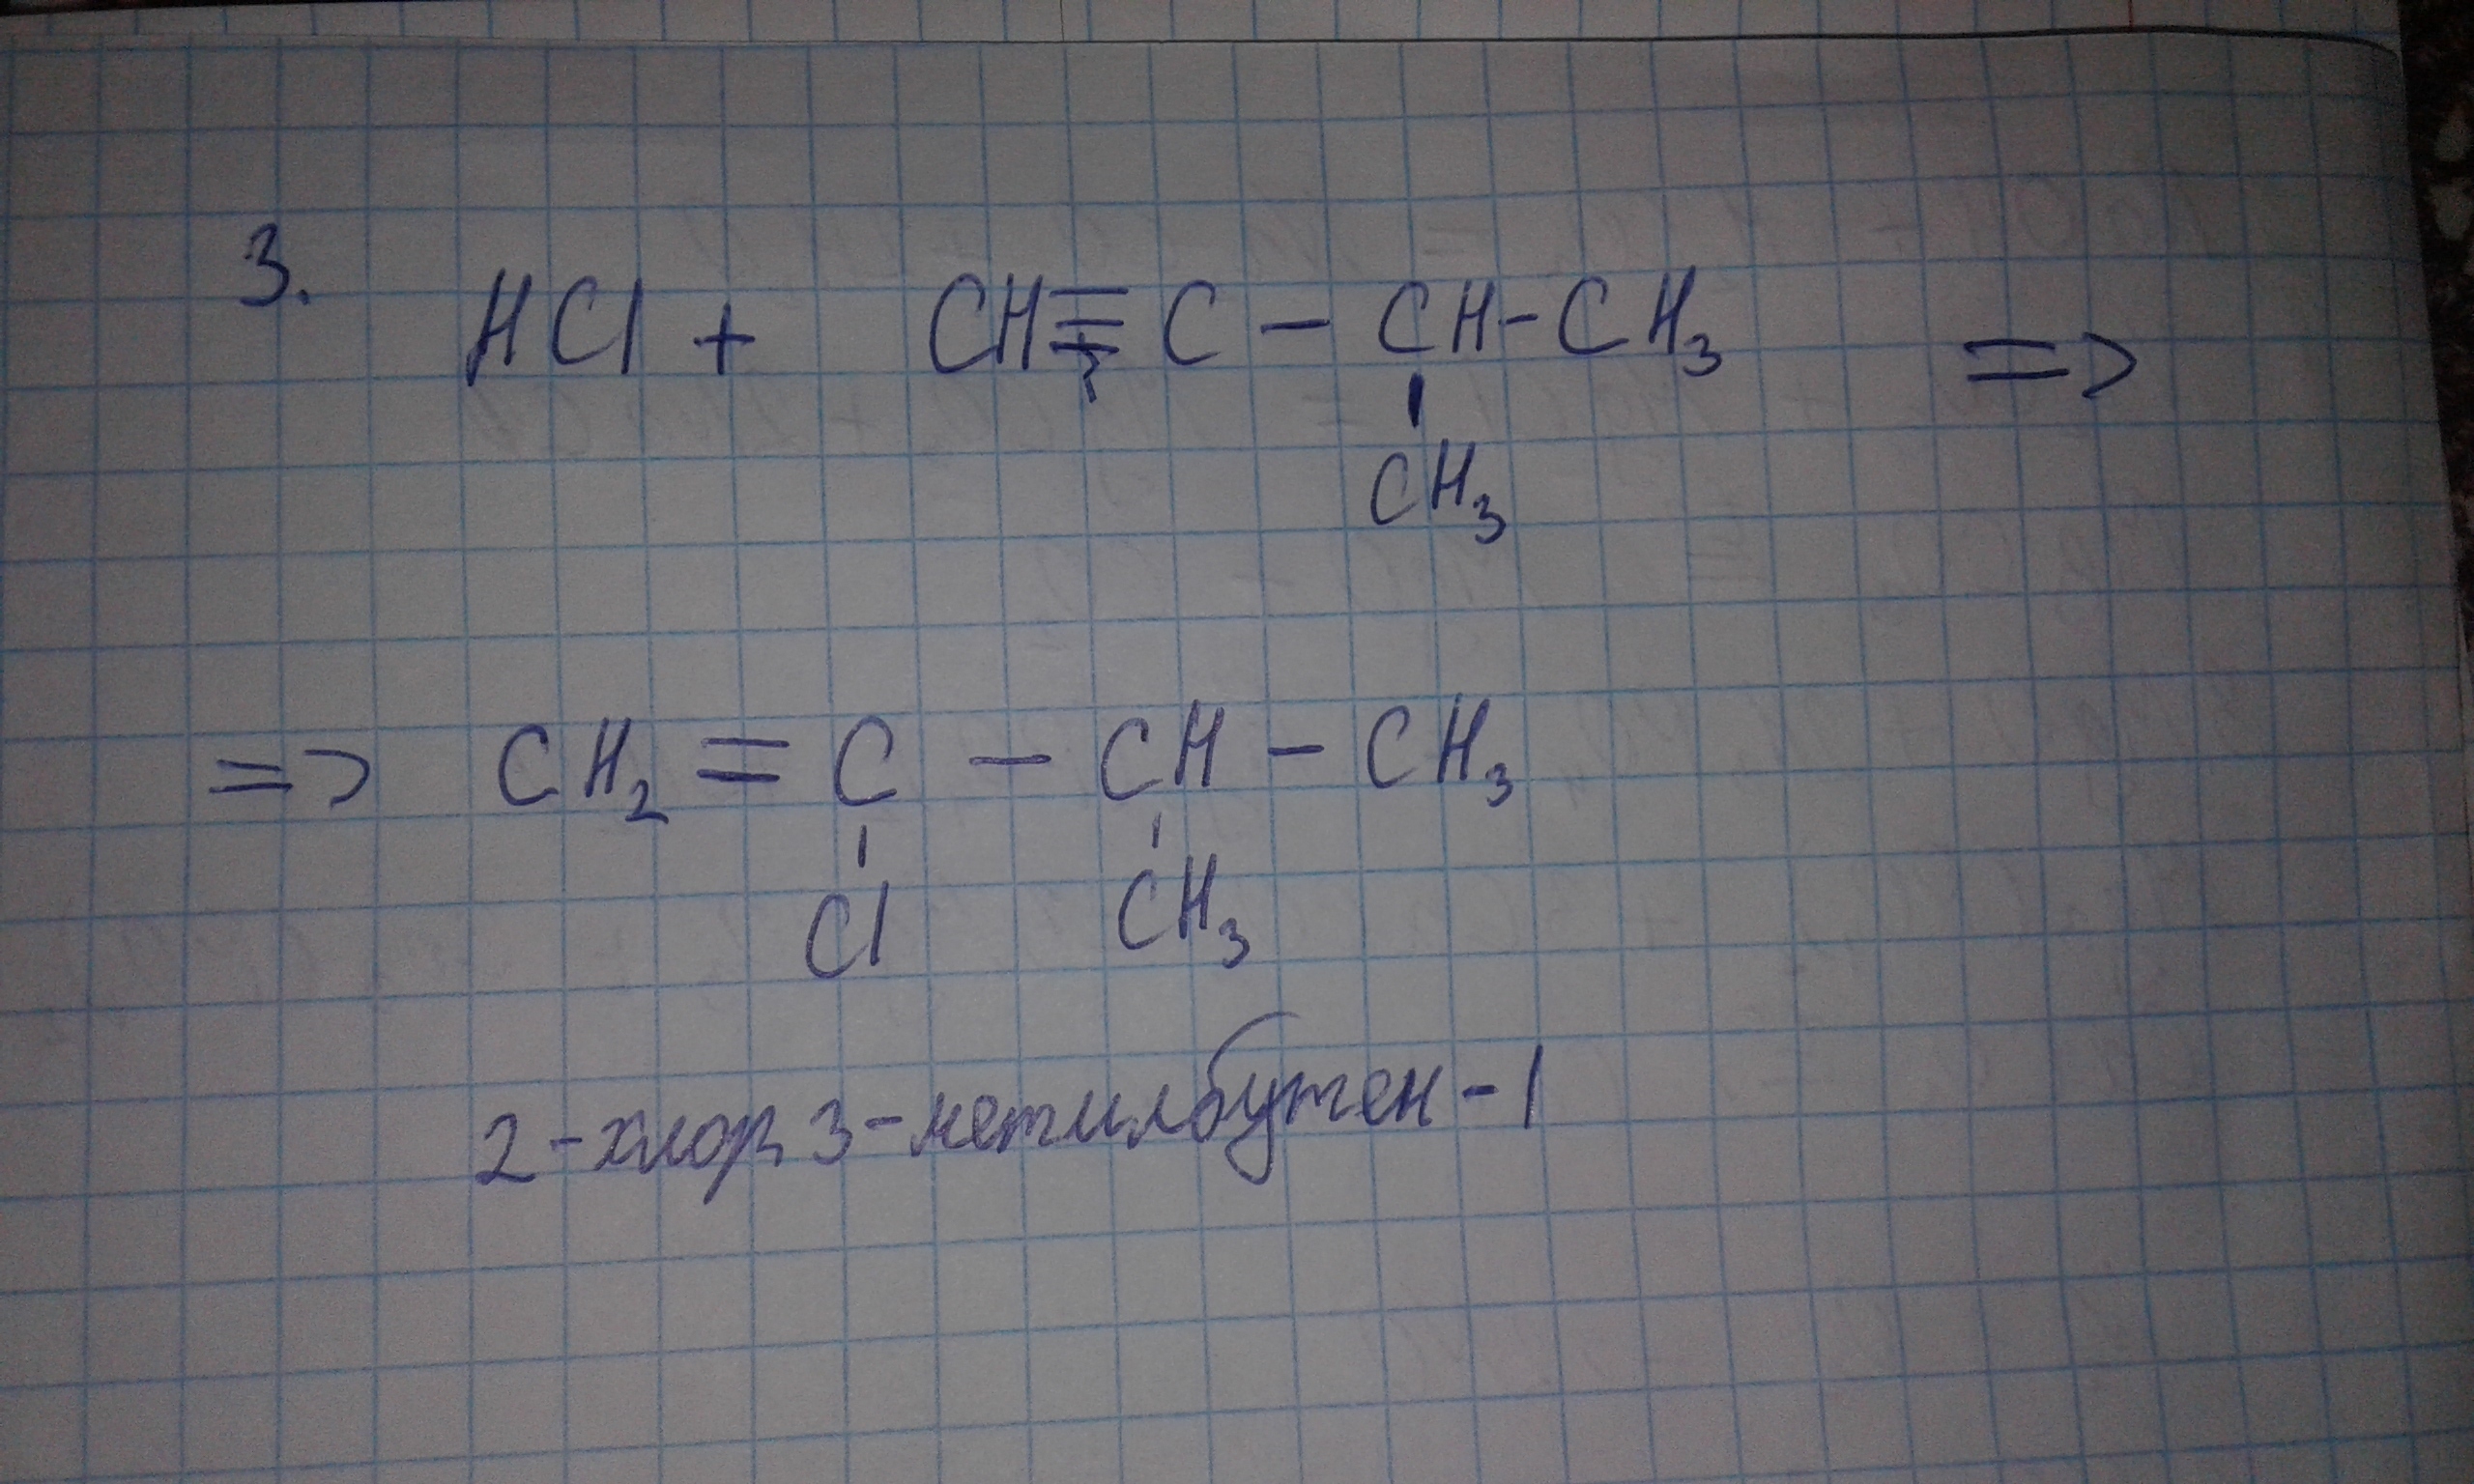 3. HCl + CH≡C-CH-CH₃ =>
CH₃
=> CH₂=C-CH-CH₃
Cl CH₃
2-хлор, 3-метилбутен-1